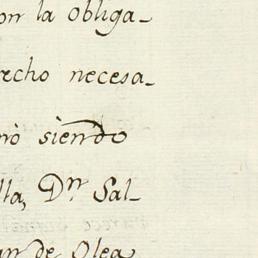 on la obliga-
recho necesa-
nò siendo
lta, Dn Sal-
an de Olea